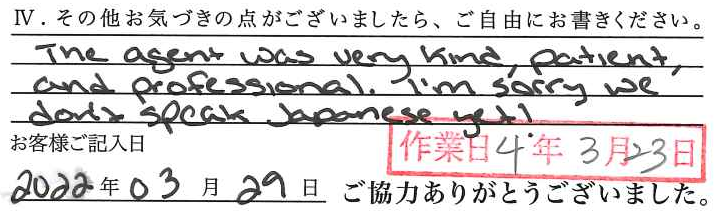 Ⅳ．その他お気づきの点がございましたら、ご自由にお書きください。
The agent was very kind, patient,
and professional. I'm sorry we
don't speak Japanese yet!
お客様ご記入日
作業日 4.年 3月23日
2022年 03月 29日 ご協力ありがとうございました。